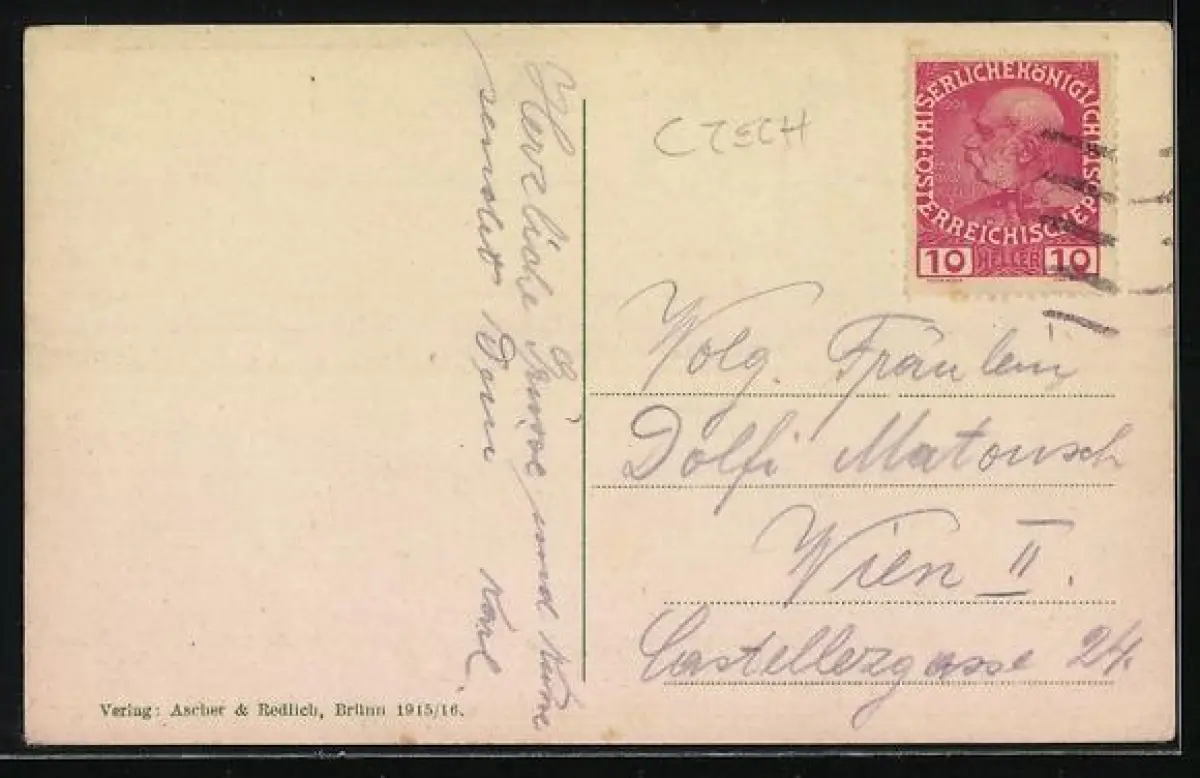 Herzliche Grüsse und Küsse
sendet Dein Karl.
CZECH
KAISERLICHEKÖNIGLICH
ÖSTERREICHISCHEPOST
10 HELLER 10
Wolg. Fräulein
Dolfi Matousch
Wien II.
Castellezgasse 24.
Verlag: Ascher & Redlich, Brünn 1915/16.